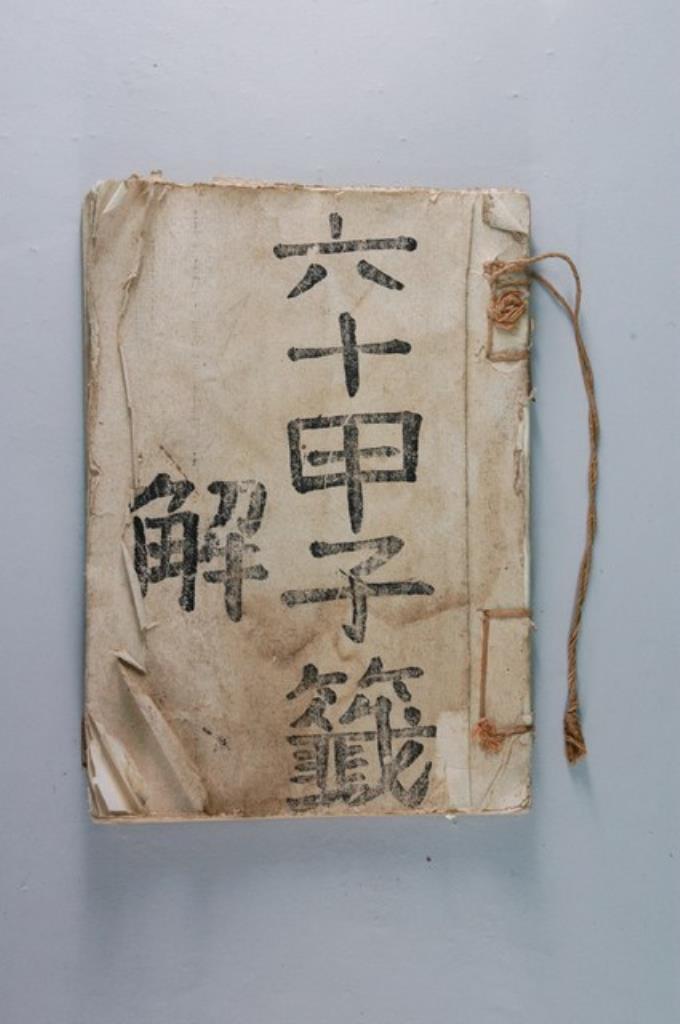 六十甲子籤
解